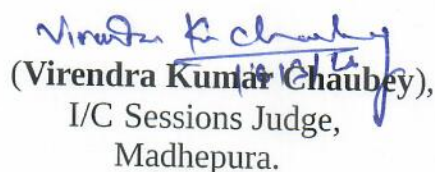 Virendra Kr Chaubey
(Virendra Kumar Chaubey),
I/C Sessions Judge,
Madhepura.